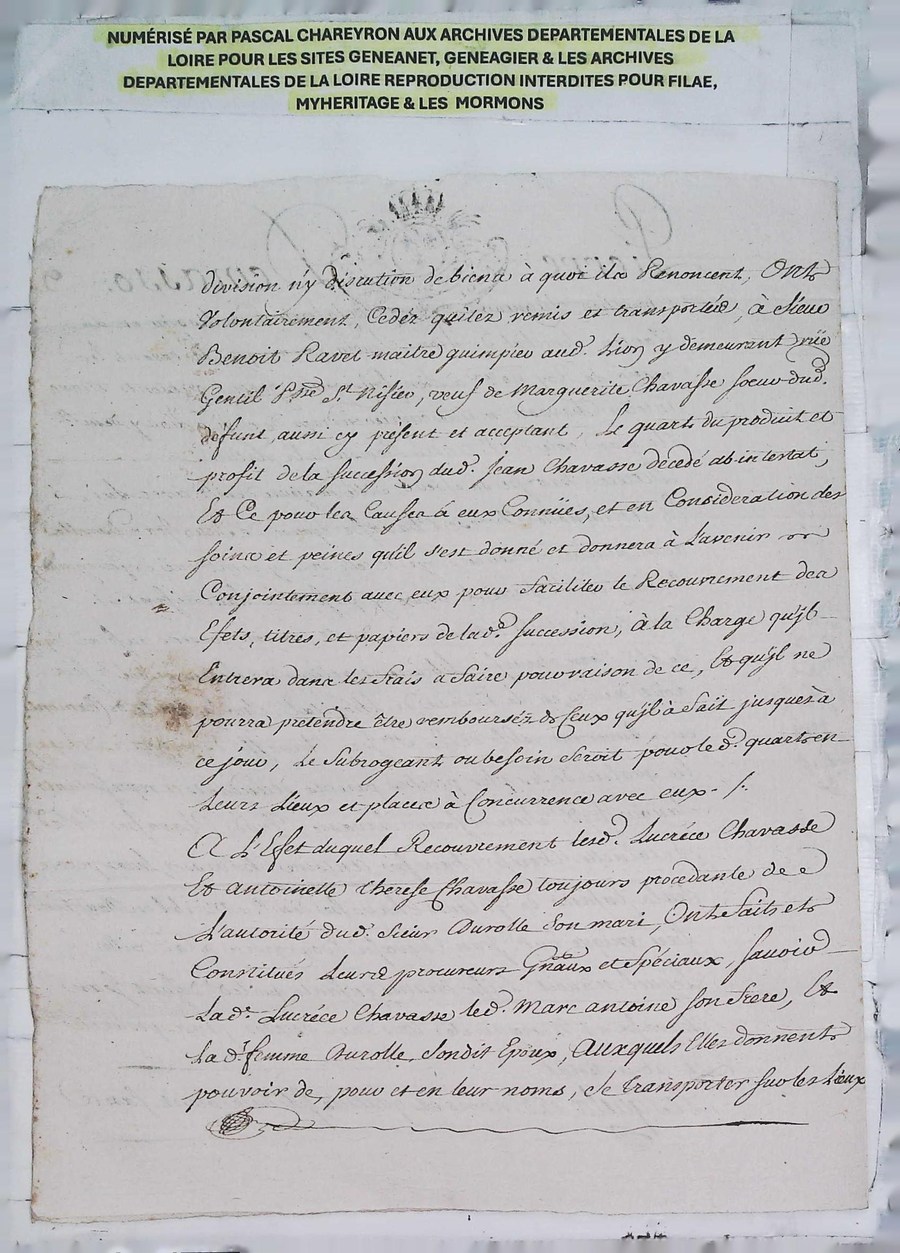 NUMÉRISÉ PAR PASCAL CHAREYRON AUX ARCHIVES DEPARTEMENTALES DE LA
LOIRE POUR LES SITES GENEANET, GENEAGIER & LES ARCHIVES
DEPARTEMENTALES DE LA LOIRE REPRODUCTION INTERDITES POUR FILAE,
MYHERITAGE & LES MORMONS
division n'y discution de biens à quoy ils Renoncent, Onts
Volontairement, Cedez quitez remis et transportés, à Sieur
Benoit Ravet maitre guimpier aud. Lion y demeurant rüe
Gentil Psse St. Nisier, veuf de Marguerite Chavasse soeur dud.
défunt, aussi cy présent et acceptant, Le quart du produit et
profit de la succession dud. Jean Chavasse décédé ab intestat,
Et Ce pour les Causes à eux Connües, et en Considération des
soins et peines qu'il s'est donné et donnera à L'avenir
Conjointement avec eux pour faciliter le Recouvrement des
Efets, titres, et papiers de lad. succession, à la Charge qu'jl
Entrera dans les frais a faire pour raison de ce, Et qu'jl ne
pourra prétendre être remboursez de Ceux qu'jl à fait jusques à
ce jour, Le Subrogeant ou besoin seroit pour led. quart en
Leurs Lieux et places à Concurrence avec eux ./.
A L'Efet duquel Recouvrement lesd. Lucréce Chavasse
Et Antoinette therese Chavasse toujours procedante de
L'autorité dud. Sieur Durolle son mari, Onts faits et
Constitués Leurs procureurs Gñaux et Spéciaux, savoir
Lad. Lucréce Chavasse led. Marc antoine son frere, Et
La d. femme Durolle, Sondit Epoux, Auxquels Elles donnent
pouvoir de, pour et en leur noms, se transporter sur les Lieux